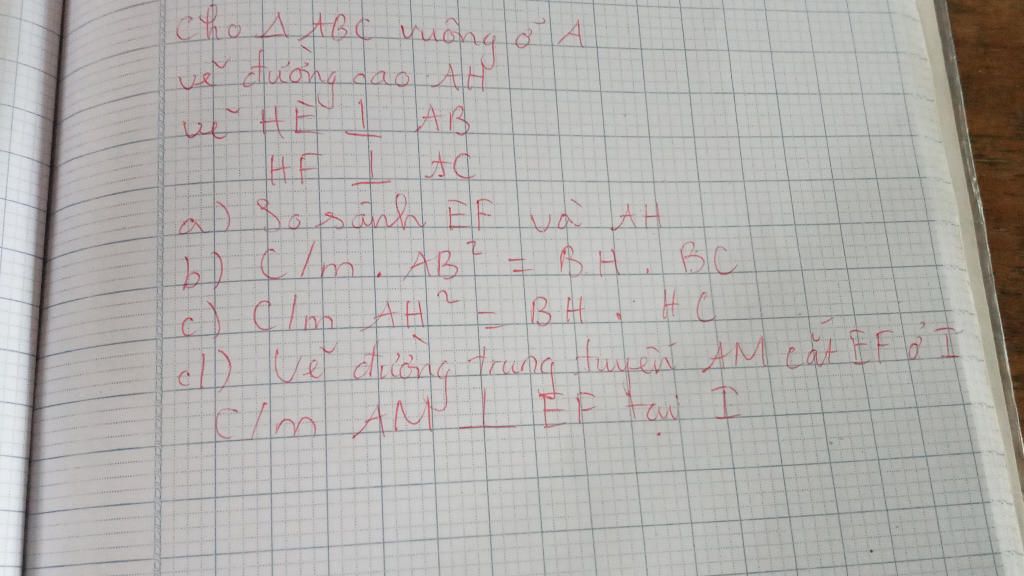 Cho Δ ABC vuông ở A
vẽ đường cao AH
vẽ HE ⊥ AB
HF ⊥ AC
a) So sánh EF và AH
b) C/m . AB² = BH . BC
c) C/m AH² = BH . HC
d) Vẽ đường trung tuyến AM cắt EF ở I
C/m AM ⊥ EF tại I